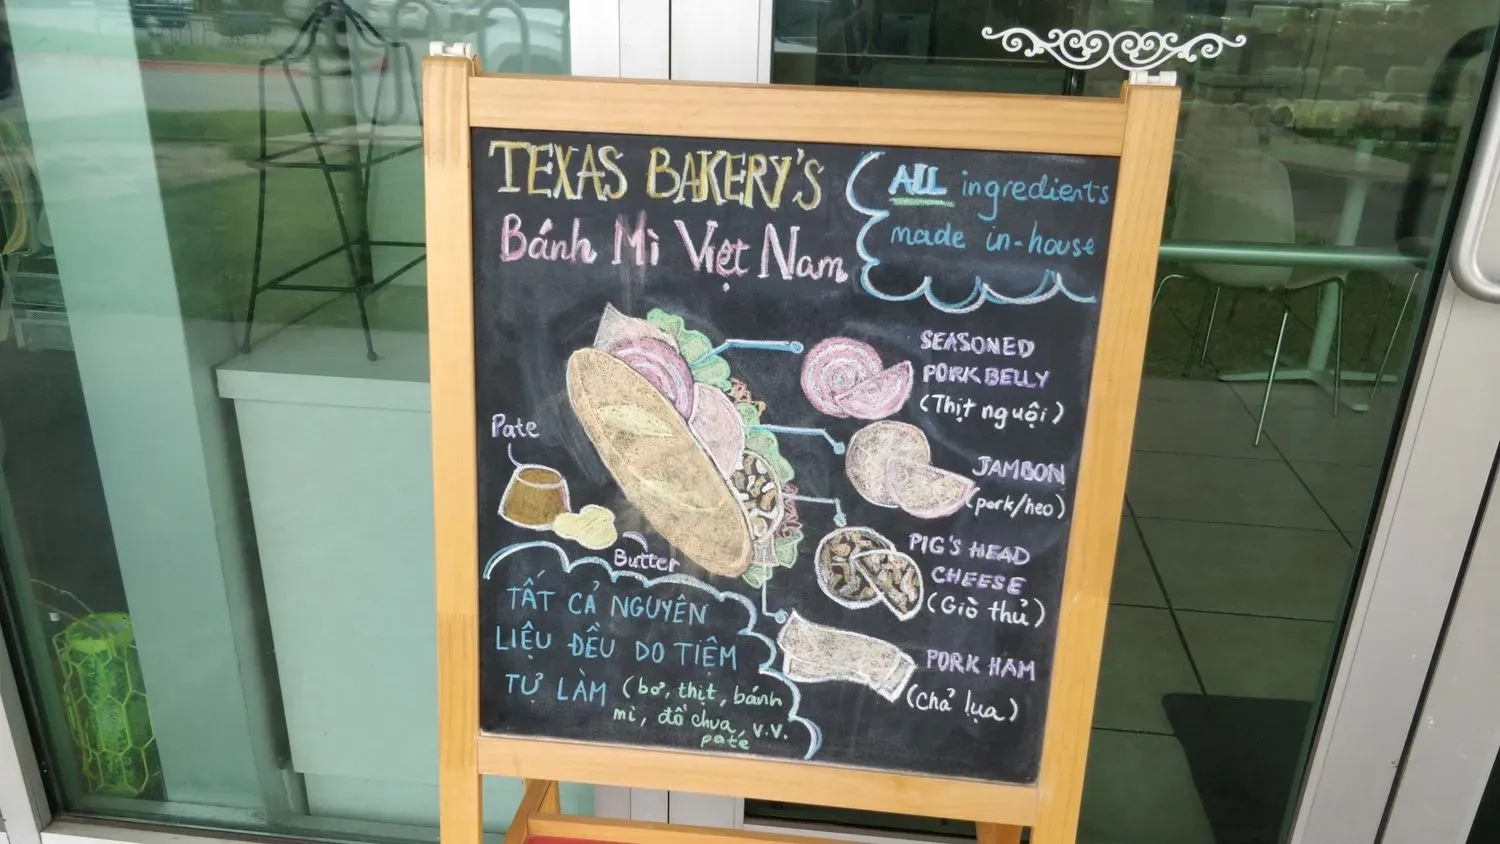 TEXAS BAKERY'S
Bánh Mì Việt Nam
ALL ingredients
made in-house
SEASONED
PORK BELLY
(Thịt nguội)
JAMBON
(pork/heo)
PIG'S HEAD
CHEESE
(Giò thủ)
PORK HAM
(chả lụa)
Pate
Butter
TẤT CẢ NGUYÊN
LIỆU ĐỀU DO TIỆM
TỰ LÀM (bơ, thịt, bánh
mì, đồ chua, v.v.
paté